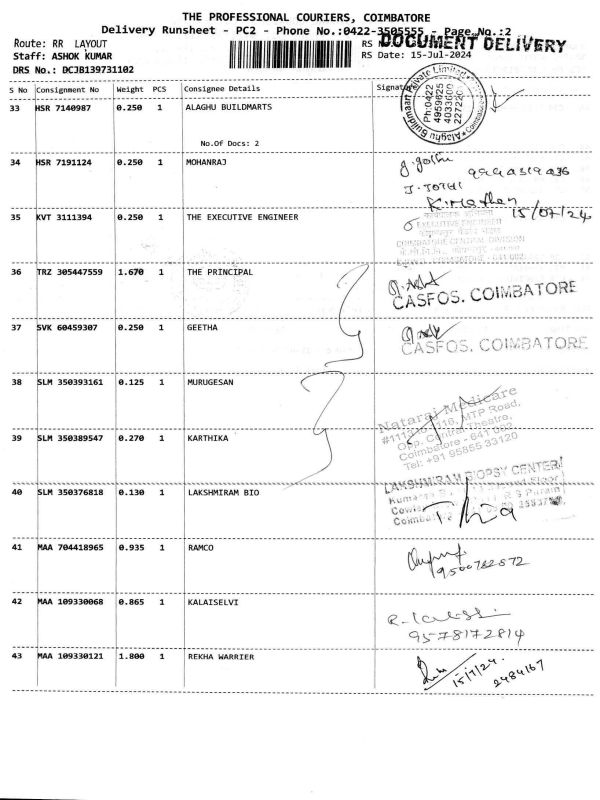 THE PROFESSIONAL COURIERS, COIMBATORE
Delivery Runsheet - PC2 - Phone No.:0422-3505555 - Page No.:2
Route: RR LAYOUT
RS N
DOCUMENT DELIVERY
Staff: ASHOK KUMAR
RS Date: 15-Jul-2024
DRS No.: DCJB139731102
S No Consignment No Weight PCS Consignee Details Signatu
33 HSR 7140987 0.250 1 ALAGHU BUILDMARTS
Alaghu Buildmaart Private Limited
Coimbatore
Ph:0422
4959625
4033600
227220
No.Of Docs: 2
34 HSR 7191124 0.250 1 MOHANRAJ
J. JOTHI
15/07/24
35 KVT 3111394 0.250 1 THE EXECUTIVE ENGINEER
EXECUTIVE ENGINEER
COIMBATORE CENTRAL DIVISION
36 TRZ 305447559 1.670 1 THE PRINCIPAL
CASFOS, COIMBATORE
37 SVK 60459307 0.250 1 GEETHA
CASFOS, COIMBATORE
38 SLM 350393161 0.125 1 MURUGESAN
Nataraj Medicare
MTP Road,
Opp. Central Theatre,
Coimbatore - 641 002
Tel: +91 95855 33120
39 SLM 350389547 0.270 1 KARTHIKA
40 SLM 350376818 0.130 1 LAKSHMIRAM BIO
LAKSHMIRAM BIOPSY CENTER
R S Puram
41 MAA 704418965 0.935 1 RAMCO
9500762572
42 MAA 109330068 0.865 1 KALAISELVI
9578172814
43 MAA 109330121 1.800 1 REKHA WARRIER
15/7/24
2484167